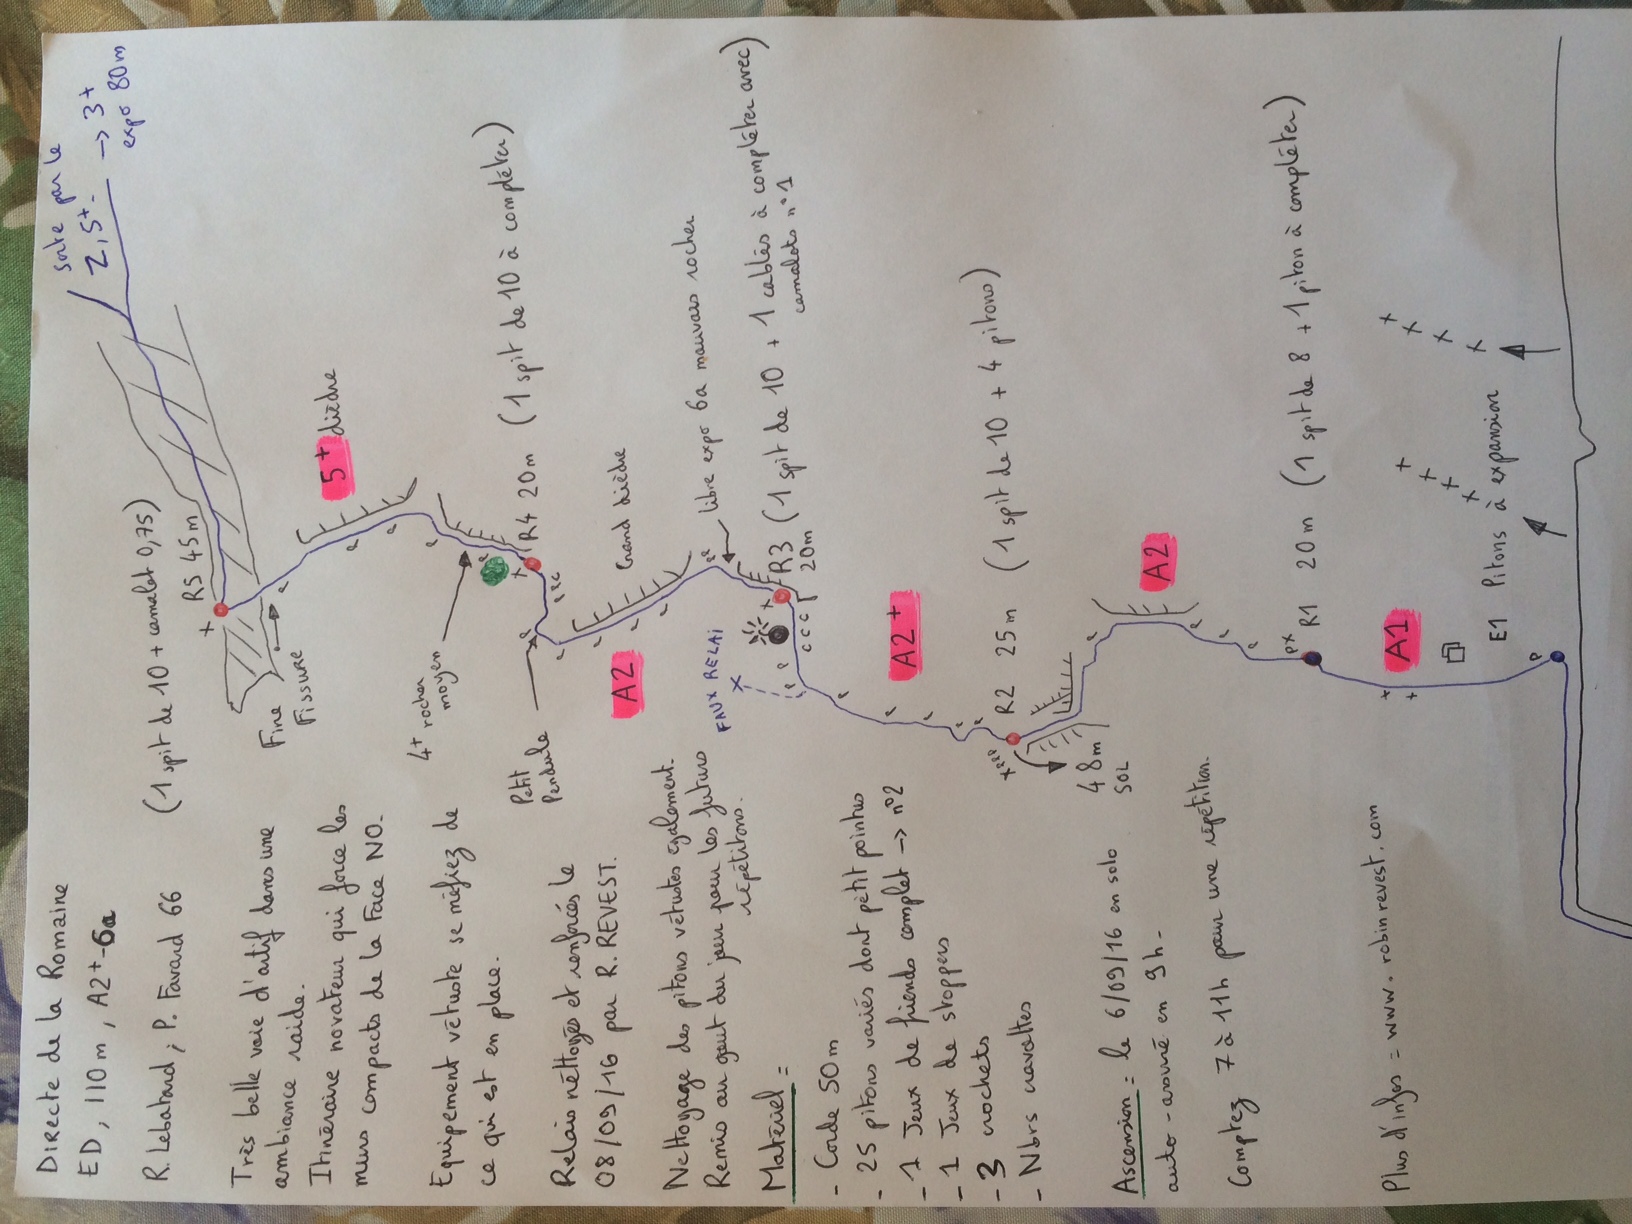 Directe de la Romaine
ED, 110m, A2+-6a
R. Lebahard, P. Favard 66
Très belle voie d'artif dans une
ambiance raide.
Itinéraire novateur qui force les
murs compacts de la Face NO.
Equipement vétuste se méfiez de
ce qui est en place.
Relais néttoyés et renforcés le
08/09/16 par R. REVEST.
Nettoyage des pitons vétustes également.
Remis au gout du jour pour les futurs
répétitions.
Matériel =
- Corde 50m
- 25 pitons variés dont pétit pointus
- 1 Jeux de friends complet -> n°2
- 1 Jeux de stoppers
- 3 crochets
- Nbrs cravattes
Ascension = le 6/09/16 en solo
auto-assuré en 9h-
Comptez 7 à 11h pour une répétition.
Plus d'infos = www.robinrevest.com
sortie par le
2, 5+- -> 3+
expo 80m
R5 45m
(1 spit de 10 + camalot 0,75)
Fine
Fissure
5+ dièdre
4+ rocher
moyen
R4 20m (1 spit de 10 à compléter)
Petit
Pendule
Grand dièdre
A2
libre expo 6a mauvais rocher
FAUX RELAI
R3 (1 spit de 10 + 1 cablés à compléter avec)
20m
camalots n°1
A2+
R2 25m (1 spit de 10 + 4 pitons)
48m
SOL
A2
R1 20m (1 spit de 8 + 1 piton à compléter)
A1
E1
Pitons à expansion